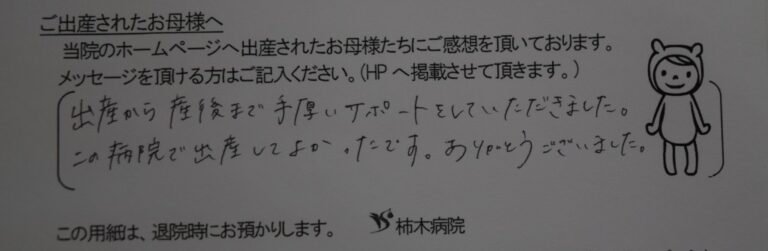 ご出産されたお母様へ
当院のホームページへ出産されたお母様たちにご感想を頂いております。
メッセージを頂ける方はご記入ください。（HPへ掲載させて頂きます。）
出産から産後まで手厚いサポートをしていただきました。
この病院で出産してよかったです。ありがとうございました。
この用紙は、退院時にお預かりします。 柿木病院